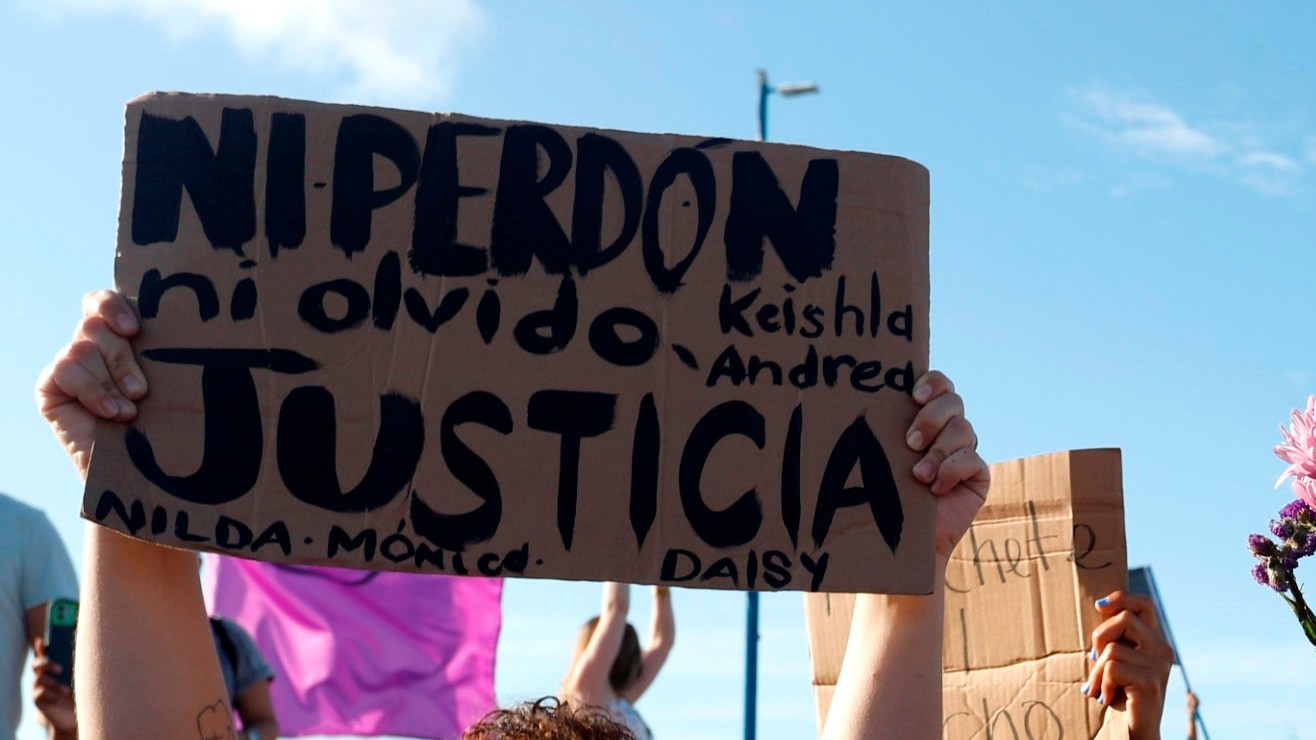 NI PERDÓN
ni olvido
Keishla
Andrea
JUSTICIA
NILDA · MÓNica.
DAISY